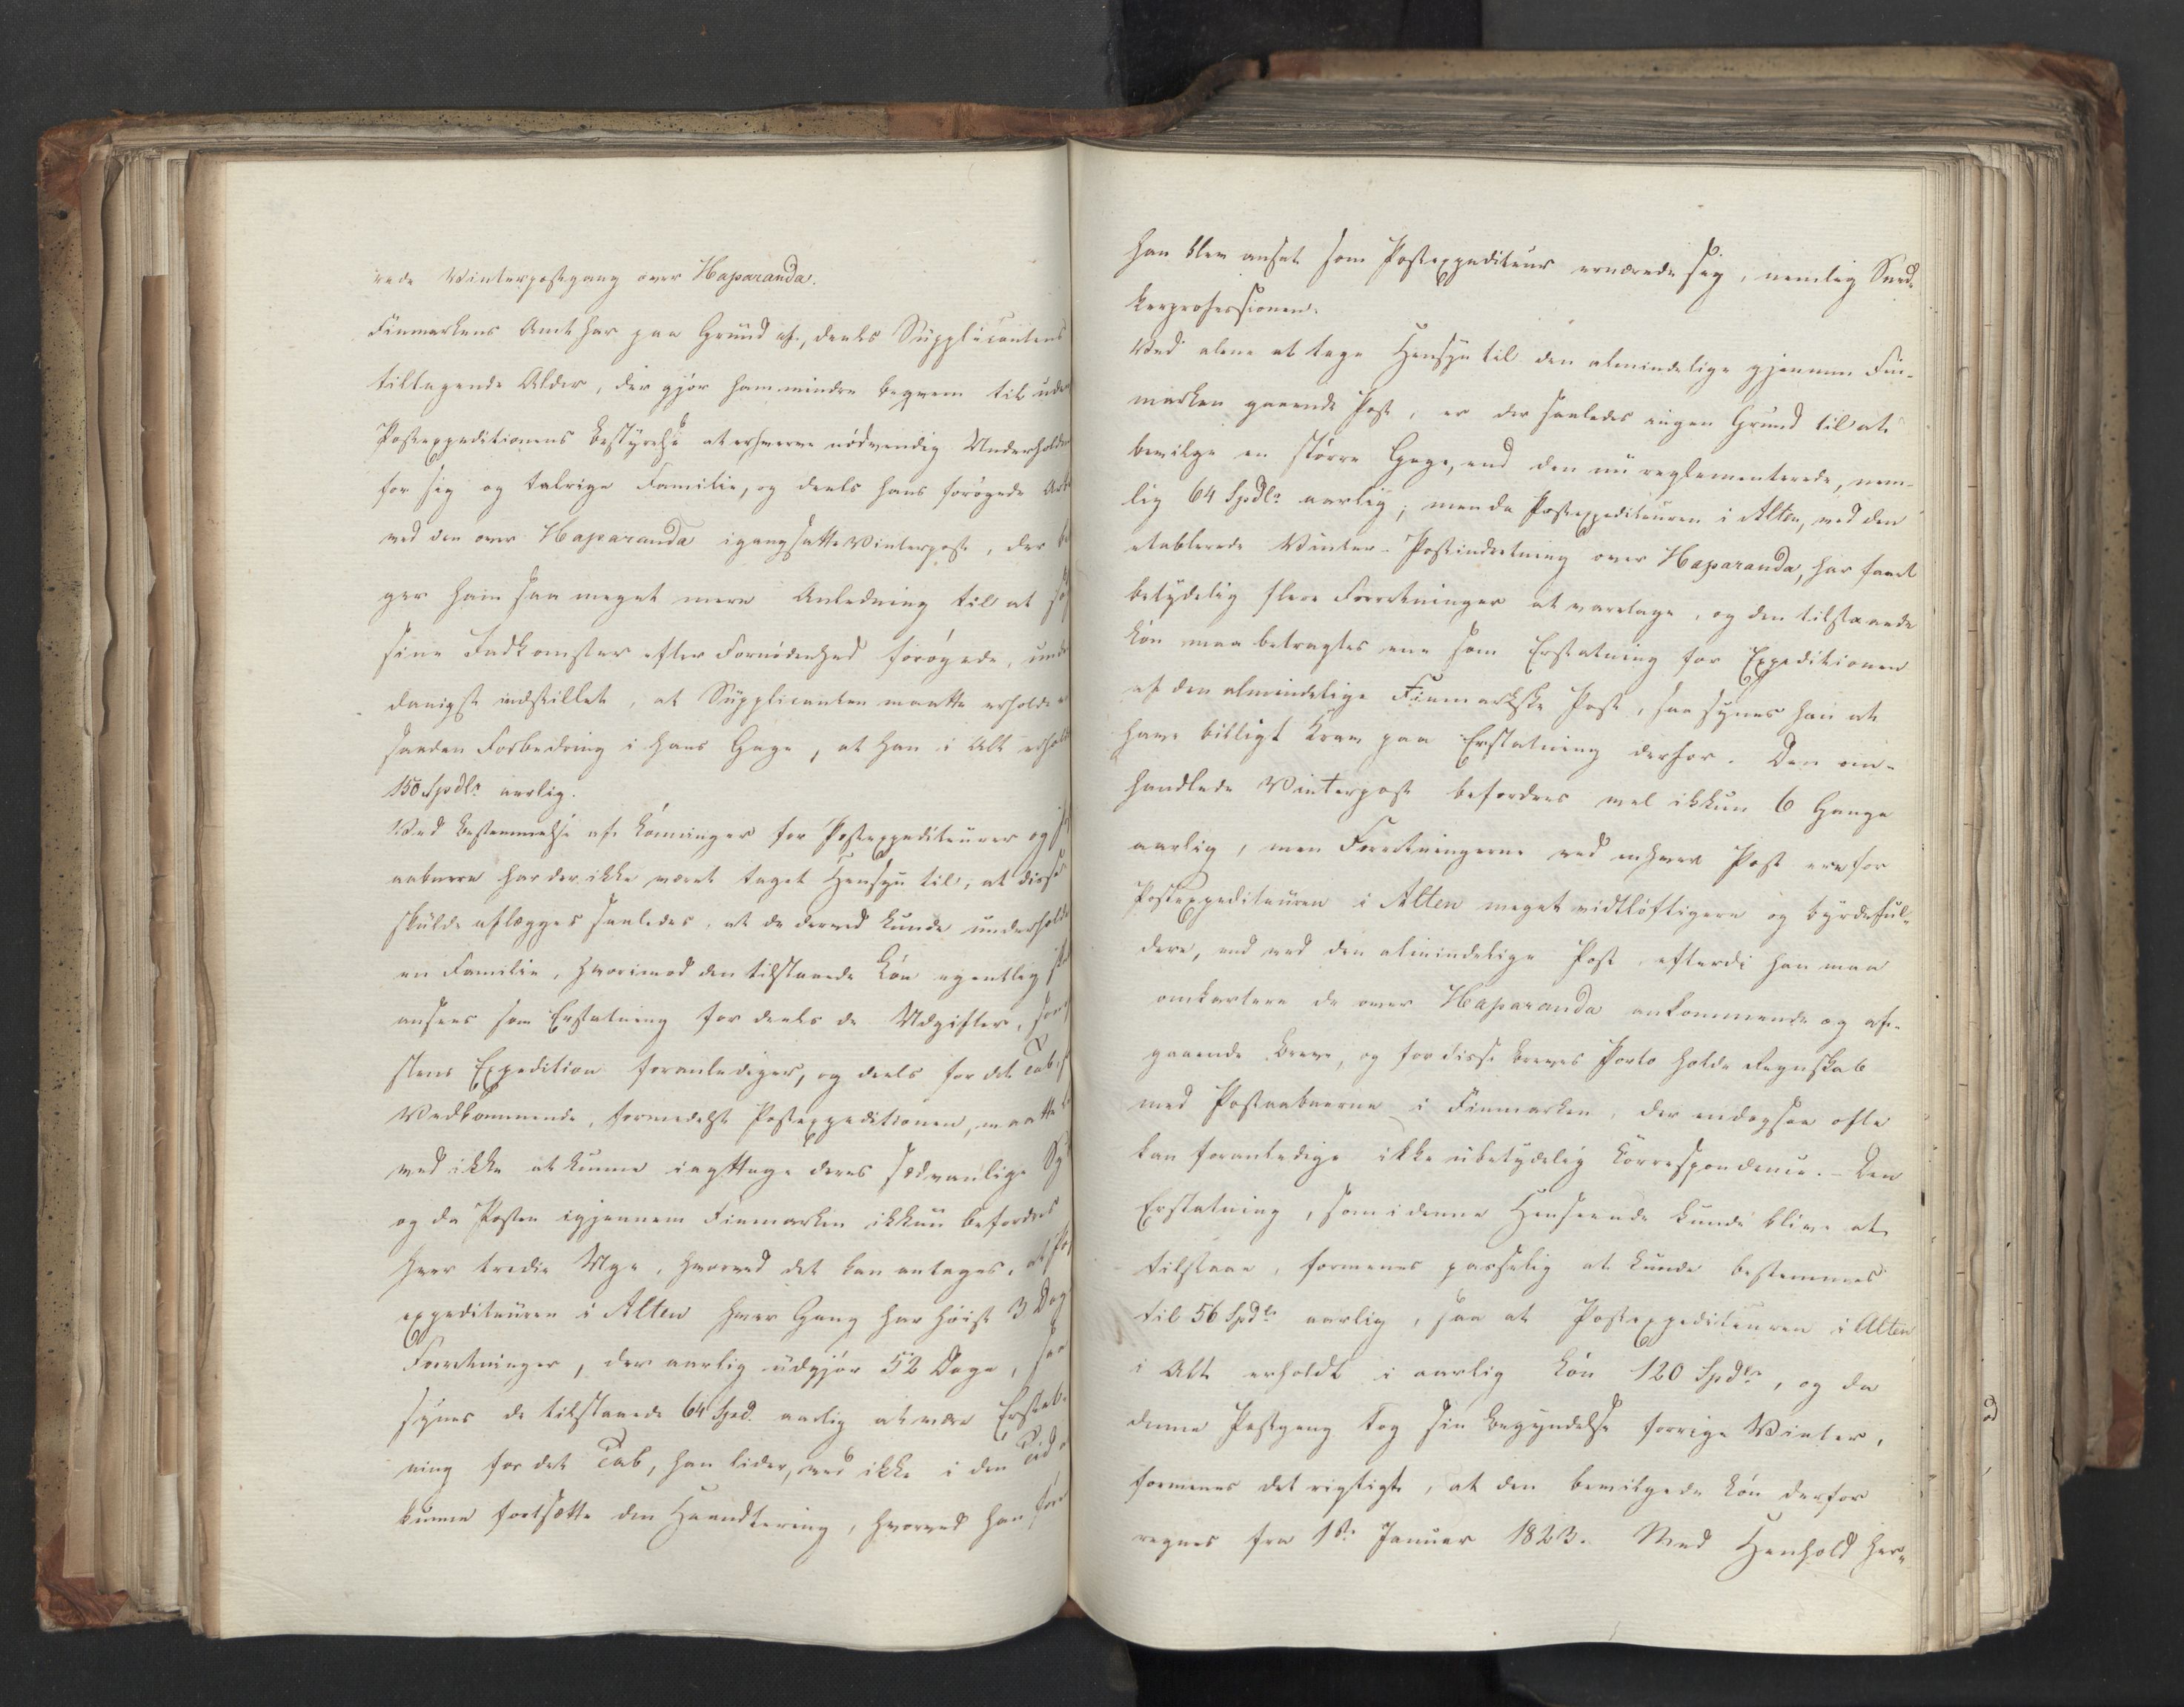 rede Winterpostgang over Haparanda.
Finmarkens Amt har paa Grund af, deels Supplicantens
tiltagende Alder, der gjør ham mindre beqvem til uden
Postexpeditionens Bestyrelse at erhverve nødvendig Underholdn
for sig og talrige Familie, og deels hans forøgede Arb
ved den over Haparanda igangsatte Winterpost, der
ger ham saa meget mere Anledning til at
sine Indkomster efter Fornødenhed forøgede, unde
danigst indstillet, at Supplicanten maatte erholde
saadan Forbedring i hans Gage, at han i Alt erhold
150 Spdlr aarlig.
Ved Bestemmelse af Lønninger for Postexpediteurer og
aabnere har der ikke været taget Hensyn til, at disse
skulde aflægges saaledes, at de derved kunde underholde
en Familie, hvorimod den tilstaaede Løn egentlig
ansees som Erstatning for deels de Udgifter, som
stens Expedition foranlediger, og deels for det Tab,
Vedkommende, formedelst Postexpeditionen, maatte
ved ikke at kunne iagttage deres sædvanlige
og da Posten igjennem Finmarken ikkun befordres
hver tredie Uge, hvorved det kan antages, at Po
expediteuren i Alten hver Gang har høist 3 Dag
Forretninger, der aarlig udgjør 52 Dage, saa
synes de tilstaaede 64 Spd. aarlig at være Erstat-
ning for det Tab, han lider, ved ikke i den Tid
kunne fortsætte den Haandtering, hvorved han før
han blev ansat som Postexpediteur ernærede sig, nemlig Sned-
kerprofessionen.
Ved alene at tage Hensyn til den almindelige gjennem Fin-
marken gaaende Post, er der saaledes ingen Grund til at
bevilge en større Gage, end den nu reglementerede, nem-
lig 64 Spdlr aarlig; men da Postexpediteuren i Alten, ved den
etablerede Winter-Postindretning over Haparanda, har faaet
betydelig flere Forretninger at varetage, og den tilstaaede
Løn maa betragtes ene som Erstatning for Expeditionen
af den almindelige Finmarkske Post, saa synes han at
have billigt Krav paa Erstatning derfor. Den om-
handlede Winterpost befordres vel ikkun 6 Gange
aarlig, men Forretningerne ved enhver Post ere for
Postexpediteuren i Alten meget vidtløftigere og byrdeful-
dere, end ved den almindelige Post, efterdi han maa
omkartere de over Haparanda ankommende og af-
gaaende Breve, og for disse Breves Porto holde Regnskab
med Postaabnerne i Finmarken, der endogsaa ofte
kan foranledige ikke ubetydelig Correspondence. - Den
Erstatning, som i denne Henseende kunde blive at
tilstaae, formenes passelig at kunde bestemmes
til 56 Spdlr aarlig, saa at Postexpediteuren i Alten
i Alt erholdt i aarlig Løn 120 Spdlr, og da
denne Postgang tog sin Begyndelse forrige Winter,
formenes det rigtigt, at den bevilgede Løn derfor
regnes fra 1ste Januar 1823. Med Henhold her-